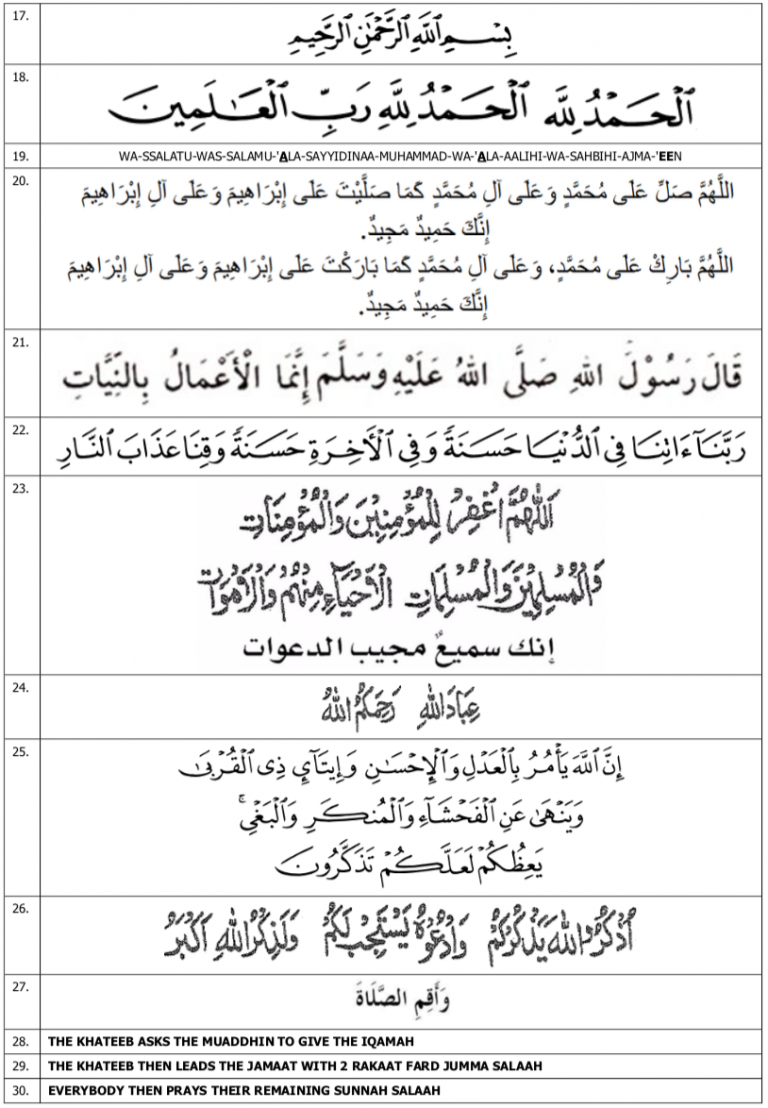 17. بِسْمِ اللَّهِ الرَّحْمَٰنِ الرَّحِيمِ
18. الْحَمْدُ لِلَّهِ الْحَمْدُ لِلَّهِ رَبِّ الْعَالَمِينَ
19. WA-SSALATU-WAS-SALAMU-'ALA-SAYYIDINAA-MUHAMMAD-WA-'ALA-AALIHI-WA-SAHBIHI-AJMA-'EEN
20. اللَّهُمَّ صَلِّ عَلَى مُحَمَّدٍ وَعَلَى آلِ مُحَمَّدٍ كَمَا صَلَّيْتَ عَلَى إِبْرَاهِيمَ وَعَلَى آلِ إِبْرَاهِيمَ
إِنَّكَ حَمِيدٌ مَجِيدٌ.
اللَّهُمَّ بَارِكْ عَلَى مُحَمَّدٍ، وَعَلَى آلِ مُحَمَّدٍ كَمَا بَارَكْتَ عَلَى إِبْرَاهِيمَ وَعَلَى آلِ إِبْرَاهِيمَ
إِنَّكَ حَمِيدٌ مَجِيدٌ.
21. قَالَ رَسُوْلَ اللهِ صَلَّى اللهُ عَلَيْهِ وَسَلَّمَ إِنَّمَا الْأَعْمَالُ بِالنِّيَّاتِ
22. رَبَّنَا ءَاتِنَا فِى الدُّنْيَا حَسَنَةً وَفِى الْأَخِرَةِ حَسَنَةً وَقِنَا عَذَابَ النَّارِ
23. اَللّٰهُمَّ اغْفِرْ لِلْمُؤْمِنِيْنَ وَالْمُؤْمِنَاتِ
وَالْمُسْلِمِيْنَ وَالْمُسْلِمَاتِ الْاَحْيَآءِ مِنْهُمْ وَالْاَمْوَاتِ
إنك سميعٌ مجيب الدعوات
24. عِبَادَ اللهِ رَحِمَكُمُ اللهُ
25. إِنَّ اللَّهَ يَأْمُرُ بِالْعَدْلِ وَالْإِحْسَٰنِ وَإِيتَآيِ ذِى الْقُرْبَىٰ
وَيَنْهَىٰ عَنِ الْفَحْشَآءِ وَالْمُنكَرِ وَالْبَغْيِ ۚ
يَعِظُكُمْ لَعَلَّكُمْ تَذَكَّرُونَ
26. اُذْكُرُوا اللهَ يَذْكُرْكُمْ وَادْعُوْهُ يَسْتَجِبْ لَكُمْ وَلَذِكْرُ اللهِ اَكْبَرُ
27. وَأَقِمِ الصَّلَاةَ
28. THE KHATEEB ASKS THE MUADDHIN TO GIVE THE IQAMAH
29. THE KHATEEB THEN LEADS THE JAMAAT WITH 2 RAKAAT FARD JUMMA SALAAH
30. EVERYBODY THEN PRAYS THEIR REMAINING SUNNAH SALAAH